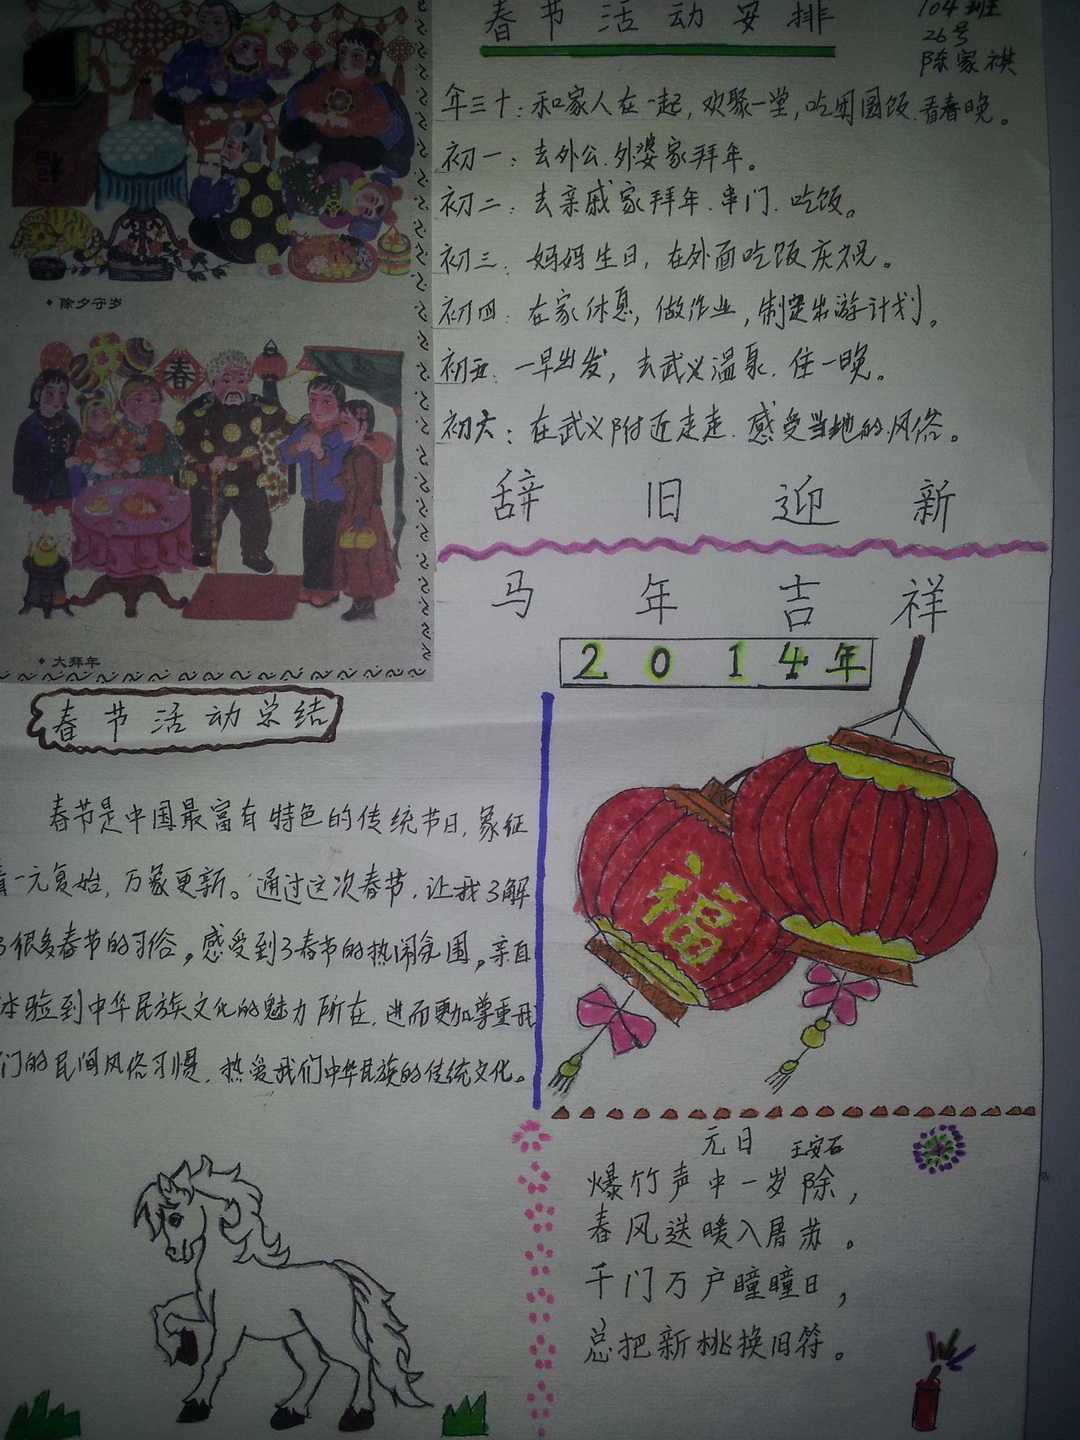 春节活动安排
104班
26号
陈家祺
年三十：和家人在一起，欢聚一堂，吃团圆饭.看春晚。
初一：去外公.外婆家拜年。
初二：去亲戚家拜年.串门.吃饭。
初三：妈妈生日，在外面吃饭庆祝。
初四：在家休息，做作业，制定出游计划。
初五：一早出发，去武义温泉.住一晚。
初六：在武义附近走走.感受当地的风俗。
辞旧迎新
马年吉祥
2014年
春
除夕守岁
大拜年
福
春节活动总结
春节是中国最富有特色的传统节日，象征
着一元复始，万象更新。通过这次春节，让我了解
了很多春节的习俗。感受到了春节的热闹氛围。亲自
体验到中华民族文化的魅力所在.进而更加尊重我
们的民间风俗习惯.热爱我们中华民族的传统文化。
元日 王安石
爆竹声中一岁除，
春风送暖入屠苏。
千门万户瞳瞳日，
总把新桃换旧符。